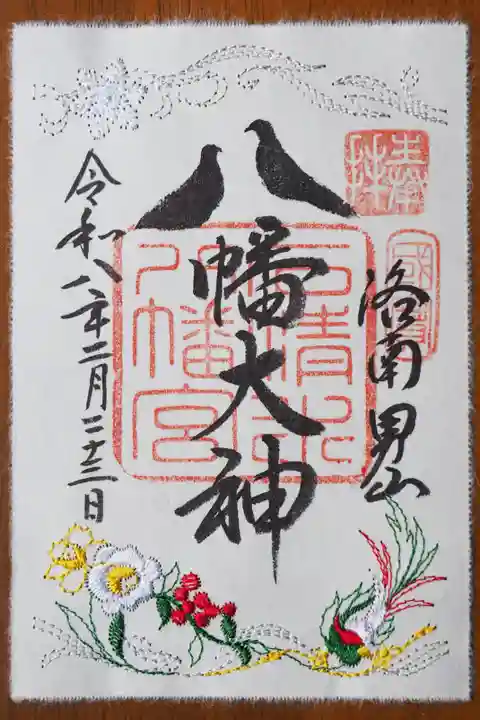 國寶
洛南男山
八幡大神
石清水
八幡宮
令和八年二月二十三日